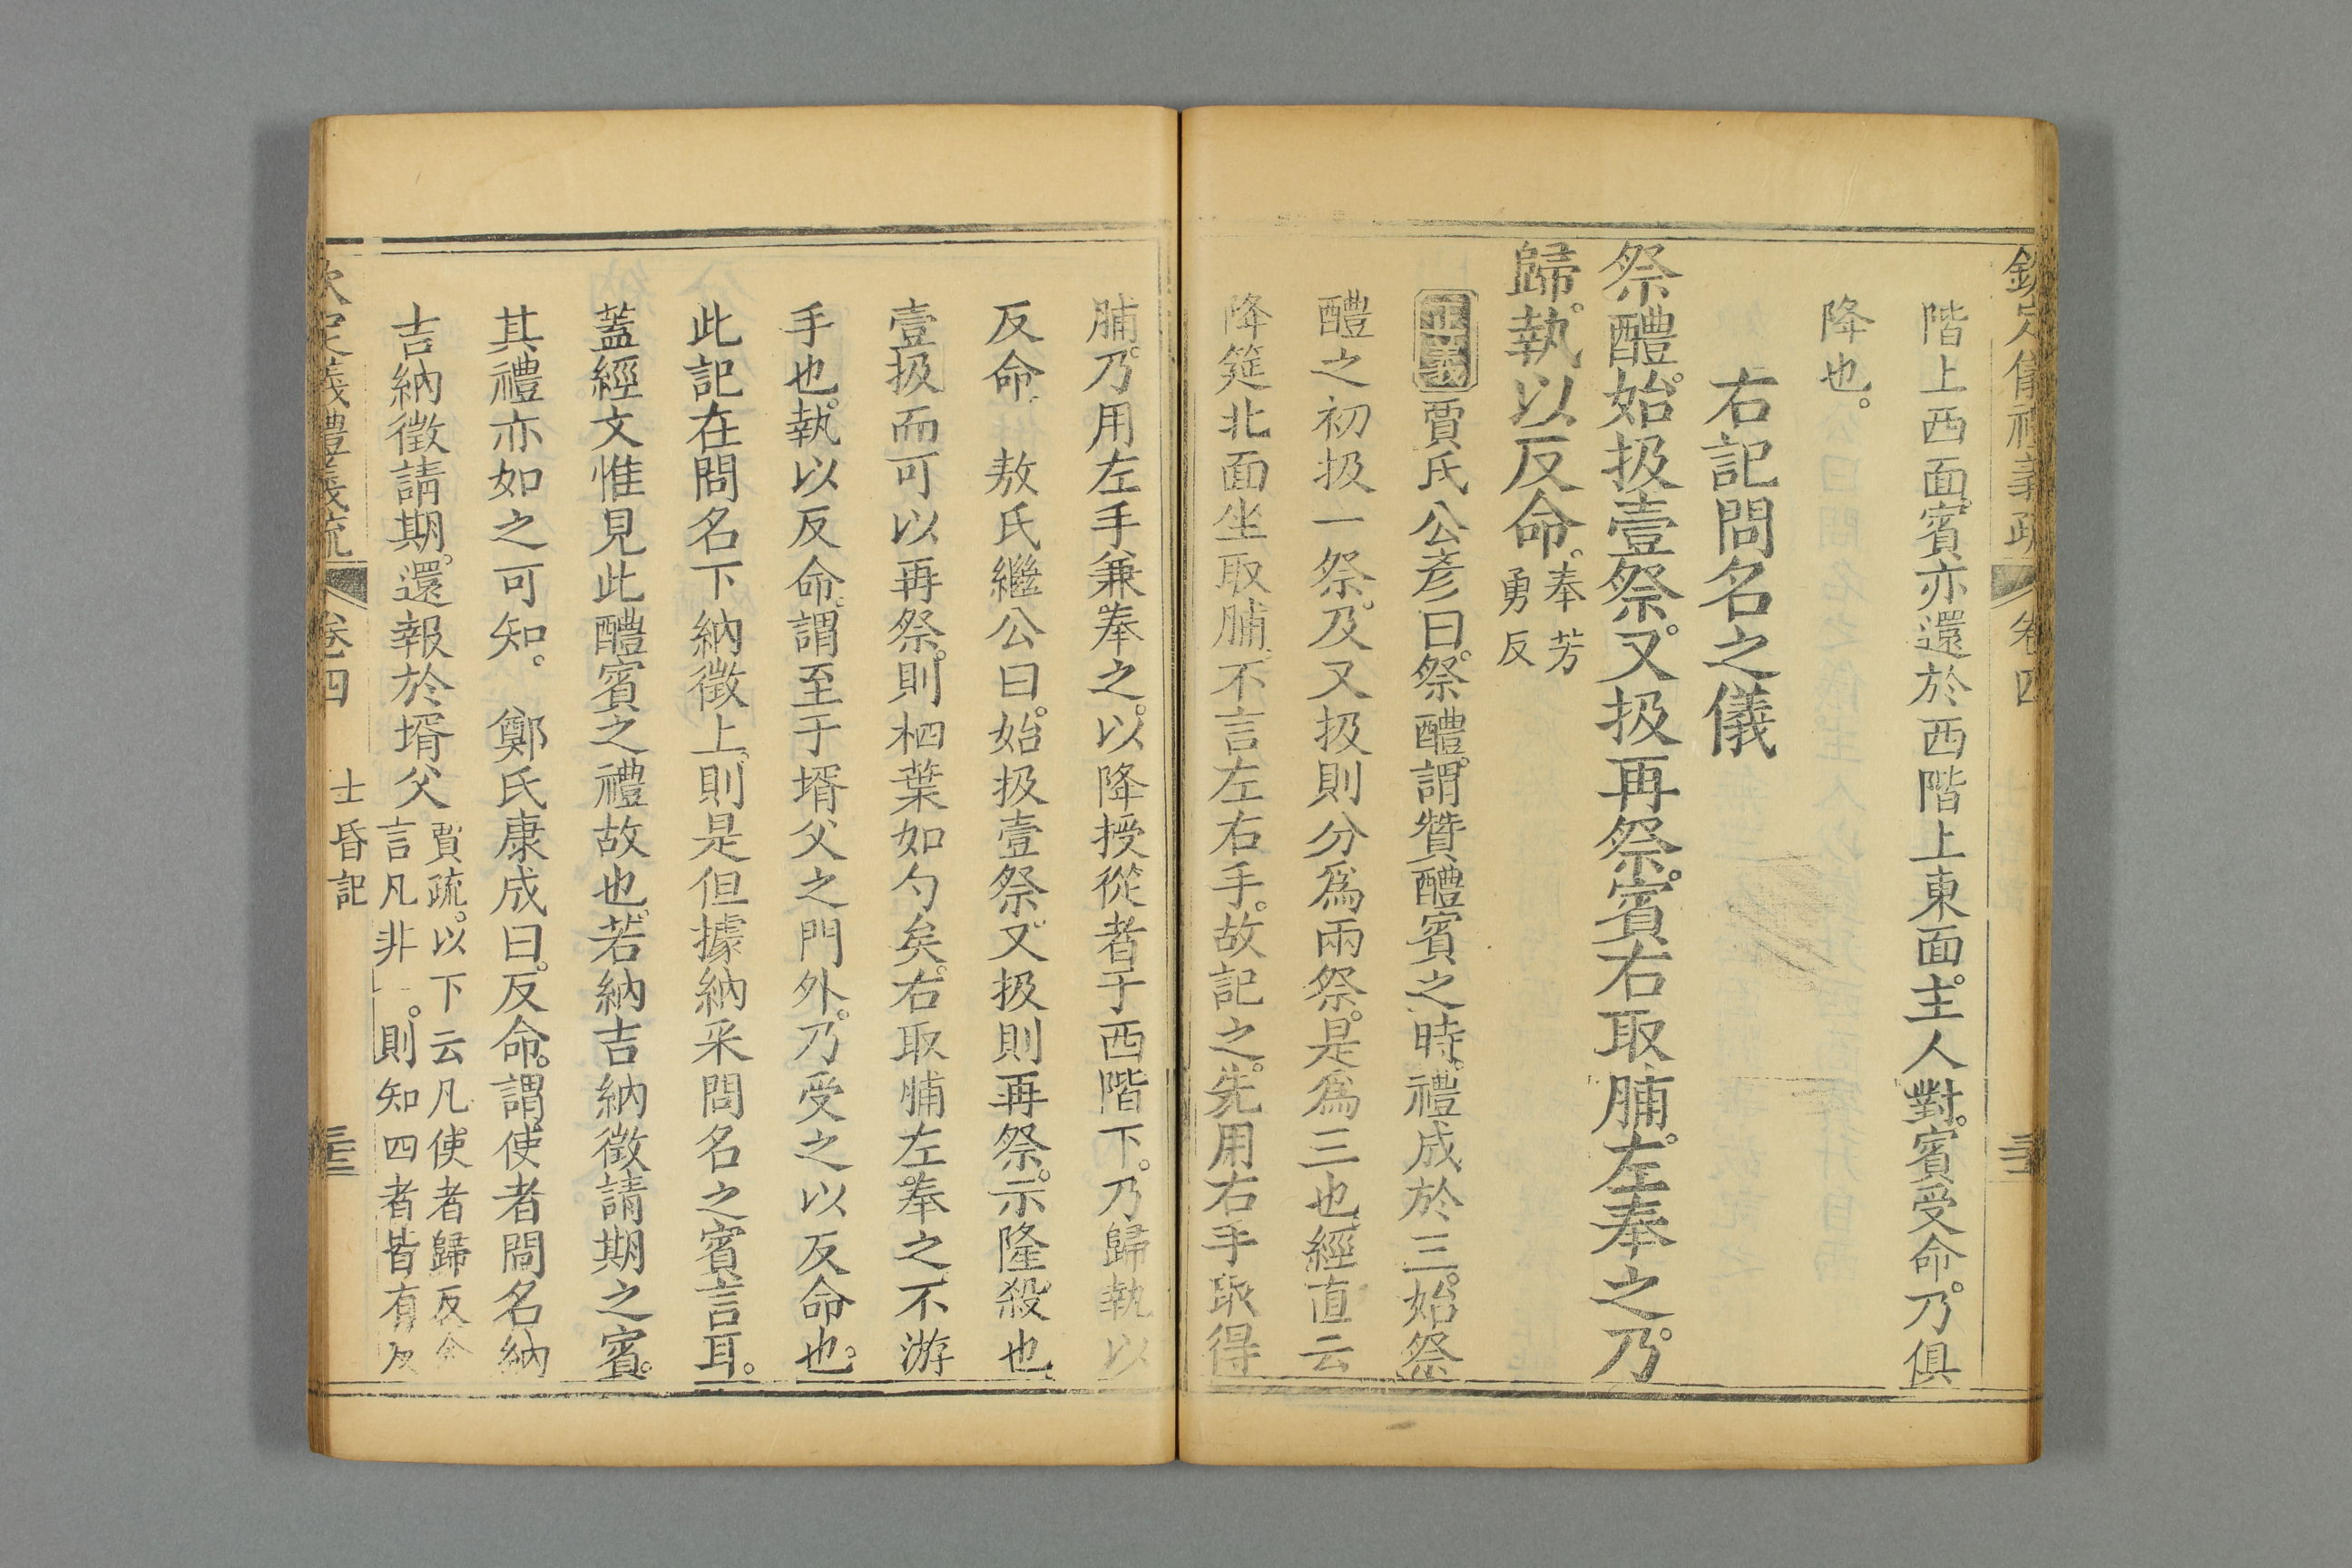 欽定儀禮義疏 卷四
階上西面。賓亦還於西階上東面。主人對。賓受命。乃俱
降也。
右記問名之儀
祭醴。始扱壹祭。又扱再祭。賓右取脯。左奉之。乃
歸。執以反命。奉芳
勇反
正義賈氏公彥曰。祭醴。謂贊醴賓之時。禮成於三。始祭
醴之初扱一祭。及又扱則分爲兩祭。是爲三也。經直云
降筵北面坐取脯。不言左右手。故記之。先用右手取得
脯。乃用左手兼奉之。以降授從者于西階下。乃歸執以
反命。 敖氏繼公曰。始扱壹祭。又扱則再祭。示隆殺也。
壹扱而可以再祭。則柶葉如勺矣。右取脯左奉之不游
手也。執以反命。謂至于壻父之門外。乃受之以反命也。
此記在問名下納徵上。則是但據納采問名之賓言耳。
蓋經文惟見此醴賓之禮故也。若納吉納徵請期之賓。
其禮亦如之可知。 鄭氏康成曰。反命。謂使者問名納
吉納徵請期。還報於壻父 賈疏。以下云凡使者歸反命
言凡非一。則知四者皆有反
欽定儀禮義疏 卷四 士昏記